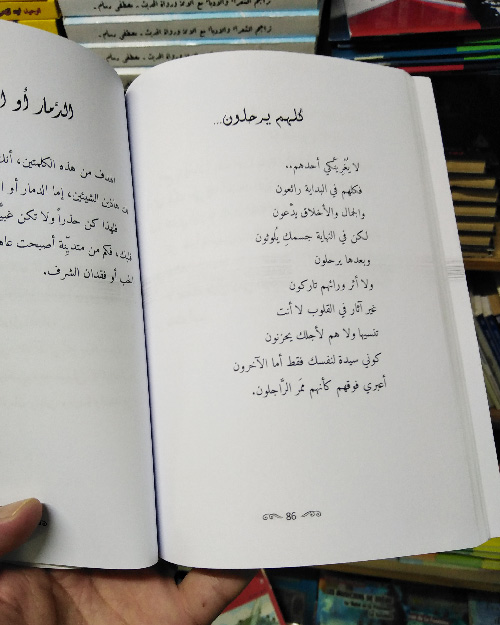 تراجم الشعراء والأدباء مع
كلهم يرحلون...
لا يُغْرِيَنَّكِ أحدهم..
فكلهم في البداية رائعون
والجمال والأخلاق يدّعون
لكن في النهاية جسمكِ يُلوثون
وبعدها يرحلون
ولا أثر ورائهم تاركون
غير آثار في القلوب لا أنت
تنسيها ولا هم لأجلك يحزنون
كوني سيدة لنفسك فقط أما الآخرون
أعبري فوقهم كأنهم ممَر الرَّاجلون.
86
الدمار أو
اهدف من هذه الكلمتين، أنك
هاذين الشيئين، إما الدمار أو
فلهذا كن حذراً ولا تكن
فكم من متديِّنة أصبحت
أو فقدان الشرف.